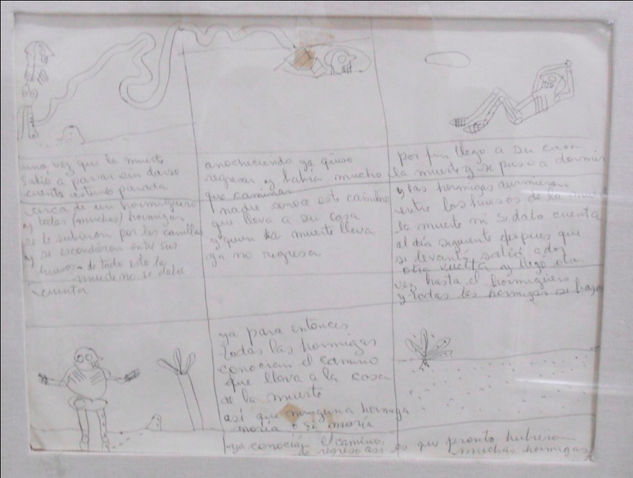 una vez que la muerte
salió a pasear sin darse
cuenta estando parada
cerca de un hormiguero
y todas (muchas) hormigas
se le subieron por las canillas
y se escondieron entre sus
huesos - de todo esto la
muerte no se daba
cuenta
anocheciendo ya quiso
regresar y había mucho
que caminar
nadie conoce este camino
que lleva a su casa
y quien la muerte lleva
ya no regresa
por fin llego a su casa
la muerte y se puso a dormir
y las hormigas durmieron
entre los huesos de la
la muerte ni se daba cuenta
al día siguiente después que
se levantó salió a dar
otra vuelta y llegó otra
vez hasta el hormiguero
y todas las hormigas se
ya para entonces
todas las hormigas
conocían el camino
que lleva a la casa
de la muerte
así que ninguna hormiga
moría o si moría
ya conocían el camino
de regreso así es que pronto hubieron
muchas hormigas